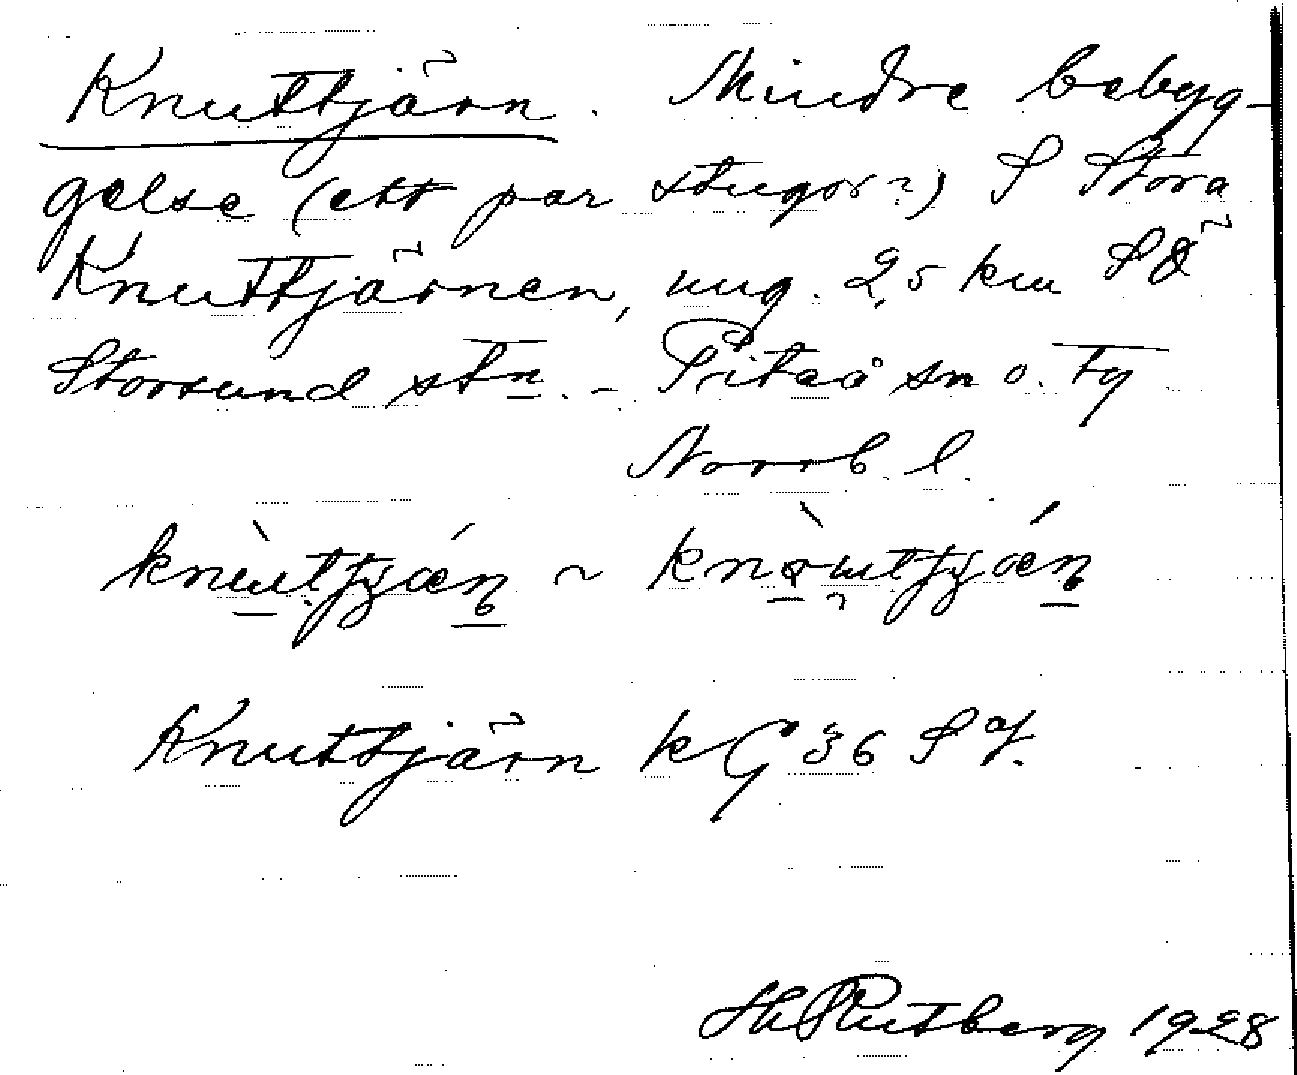 Knuttjärn. Mindre bebyg-
gelse (ett par stugor?) S Stora
Knuttjärnen, ung. 2,5 km SÖ
Storsund stn. - Piteå sn o. tg
Norrb. l.
Knuttjärn kG 36 SV.
H Rutberg 1928